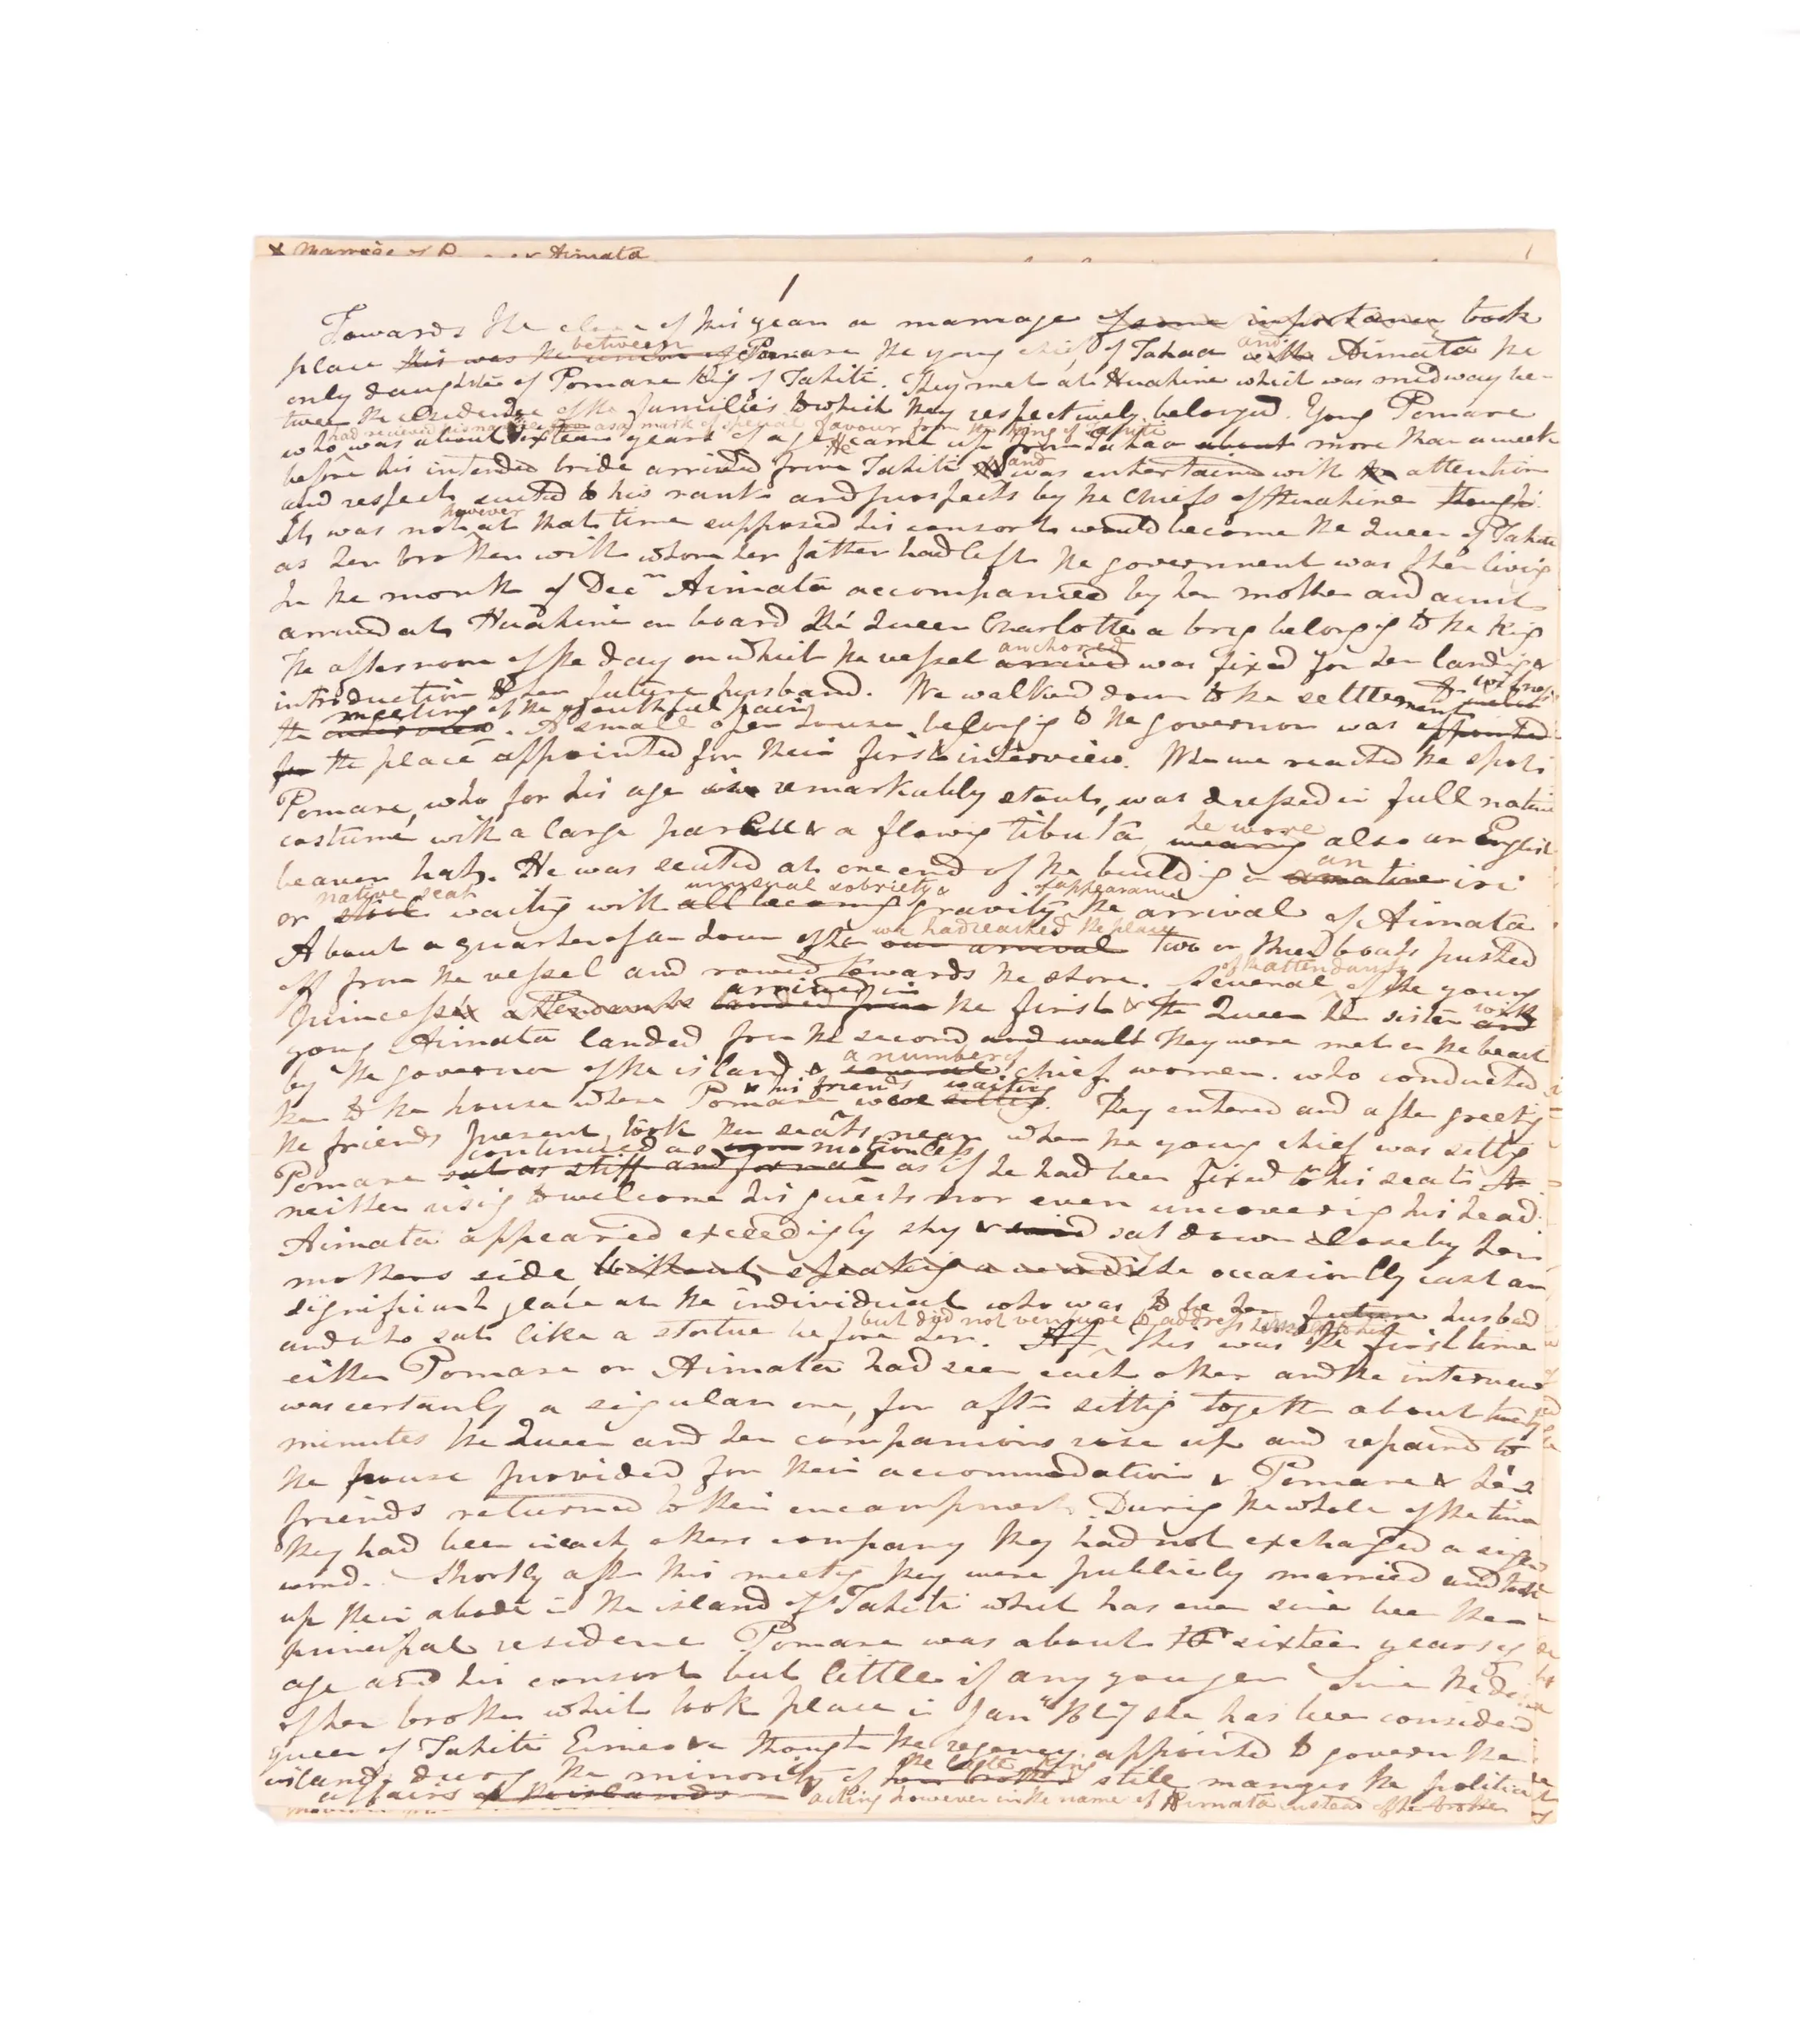 x Marriage of P & Aimata
1
1
Towards the close of this year a marriage of some importance took
between and
place this was the union of Pomare the young chief of Tahaa with Aimata the
only daughter of Pomare King of Tahiti. They met at Huahine which was midway be-
tween the residence of the families to which they respectively belonged. Young Pomare
had received his name as a mark of special favour from the King of Tahiti
who was about sixteen years of age He came up from Tahaa about more than a week
before his intended bride arrived from Tahiti and was entertained with the attention
and respect suited to his rank and prospects by the chiefs of Huahine though
however
It was not at that time supposed his consort would become the Queen of Tahiti
as her brother with whom her father had left the government was then living
In the month of Decr Aimata accompanied by her mother and aunt
arrived at Huahine on board the Queen Charlotte a brig belongig to the King
anchored
The afternoon of the day on which the vessel arrived was fixed for her landig &
introduction to her future husband. We walked down to the settlement to witness
meeting of the youthful pair
the interview. A small open house belongig to the governor was appointed
for the place appointed for their first interview. When we reached the spot
Pomare, who for his age was remarkably stout, was dressed in full native
he wore
costume with a large pareu & a flowig tibuta wearing also an English
an
beaver hat. He was seated at one end of the buildig on a native iri
native seat unusual sobriety & of appearance
or stool waitig with all becoming gravity the arrival of Aimata
we had reached the place
About a quarter of an hour after our arrival two or three boats pushed
off from the vessel and rowed towards the shore. Several of the young
of the attendants
arrived in
Princess's attendants landed from the first & the Queen her sister and with
young Aimata landed from the second and walk They were met on the beach
a number of
by the governor of the island & several chief women. who conducted
& his friends waitig
them to the house where Pomare were sittig. They entered and after greetig
the friends present, took their seats near where the young chief was sittig
continued as motionless
Pomare sat as stiff and formal as if he had been fixed to his seat
neither risig to welcome his guests nor even uncoverig his head.
Aimata appeared exceedigly shy & said sat down close by her
mothers side without speakig a word She occasionlly cast an
significant glace at the individual who was to be her future husbad
but did not venture to address
and who sat like a statue before her. This was the first time
either Pomare or Aimata had seen each other and the interview
was certanly a sigular one, for after sittig togethr about twety
minutes the Queen and her companions rose up and repaired to
the house provided for their accommodation & Pomare & his
friends returned to their encampment. Durig the whole of the time
they had been in each others company they had not exchaged a sigle
word. Shortly after this meetig they were publicly married and took
up their abode in the island of Tahiti which has ever since been their
principal residence Pomare was about sixteen years of
age and his consort but little if any younger Since the
of her brother which took place in Jany 1827 she has been considerd
queen of Tahiti Eimeo &c though the regency appointed to govern the
the late King
islands durig the minority of her brother still manges the politica
affairs of the islands acting however in the name of Aimata instead of the brother